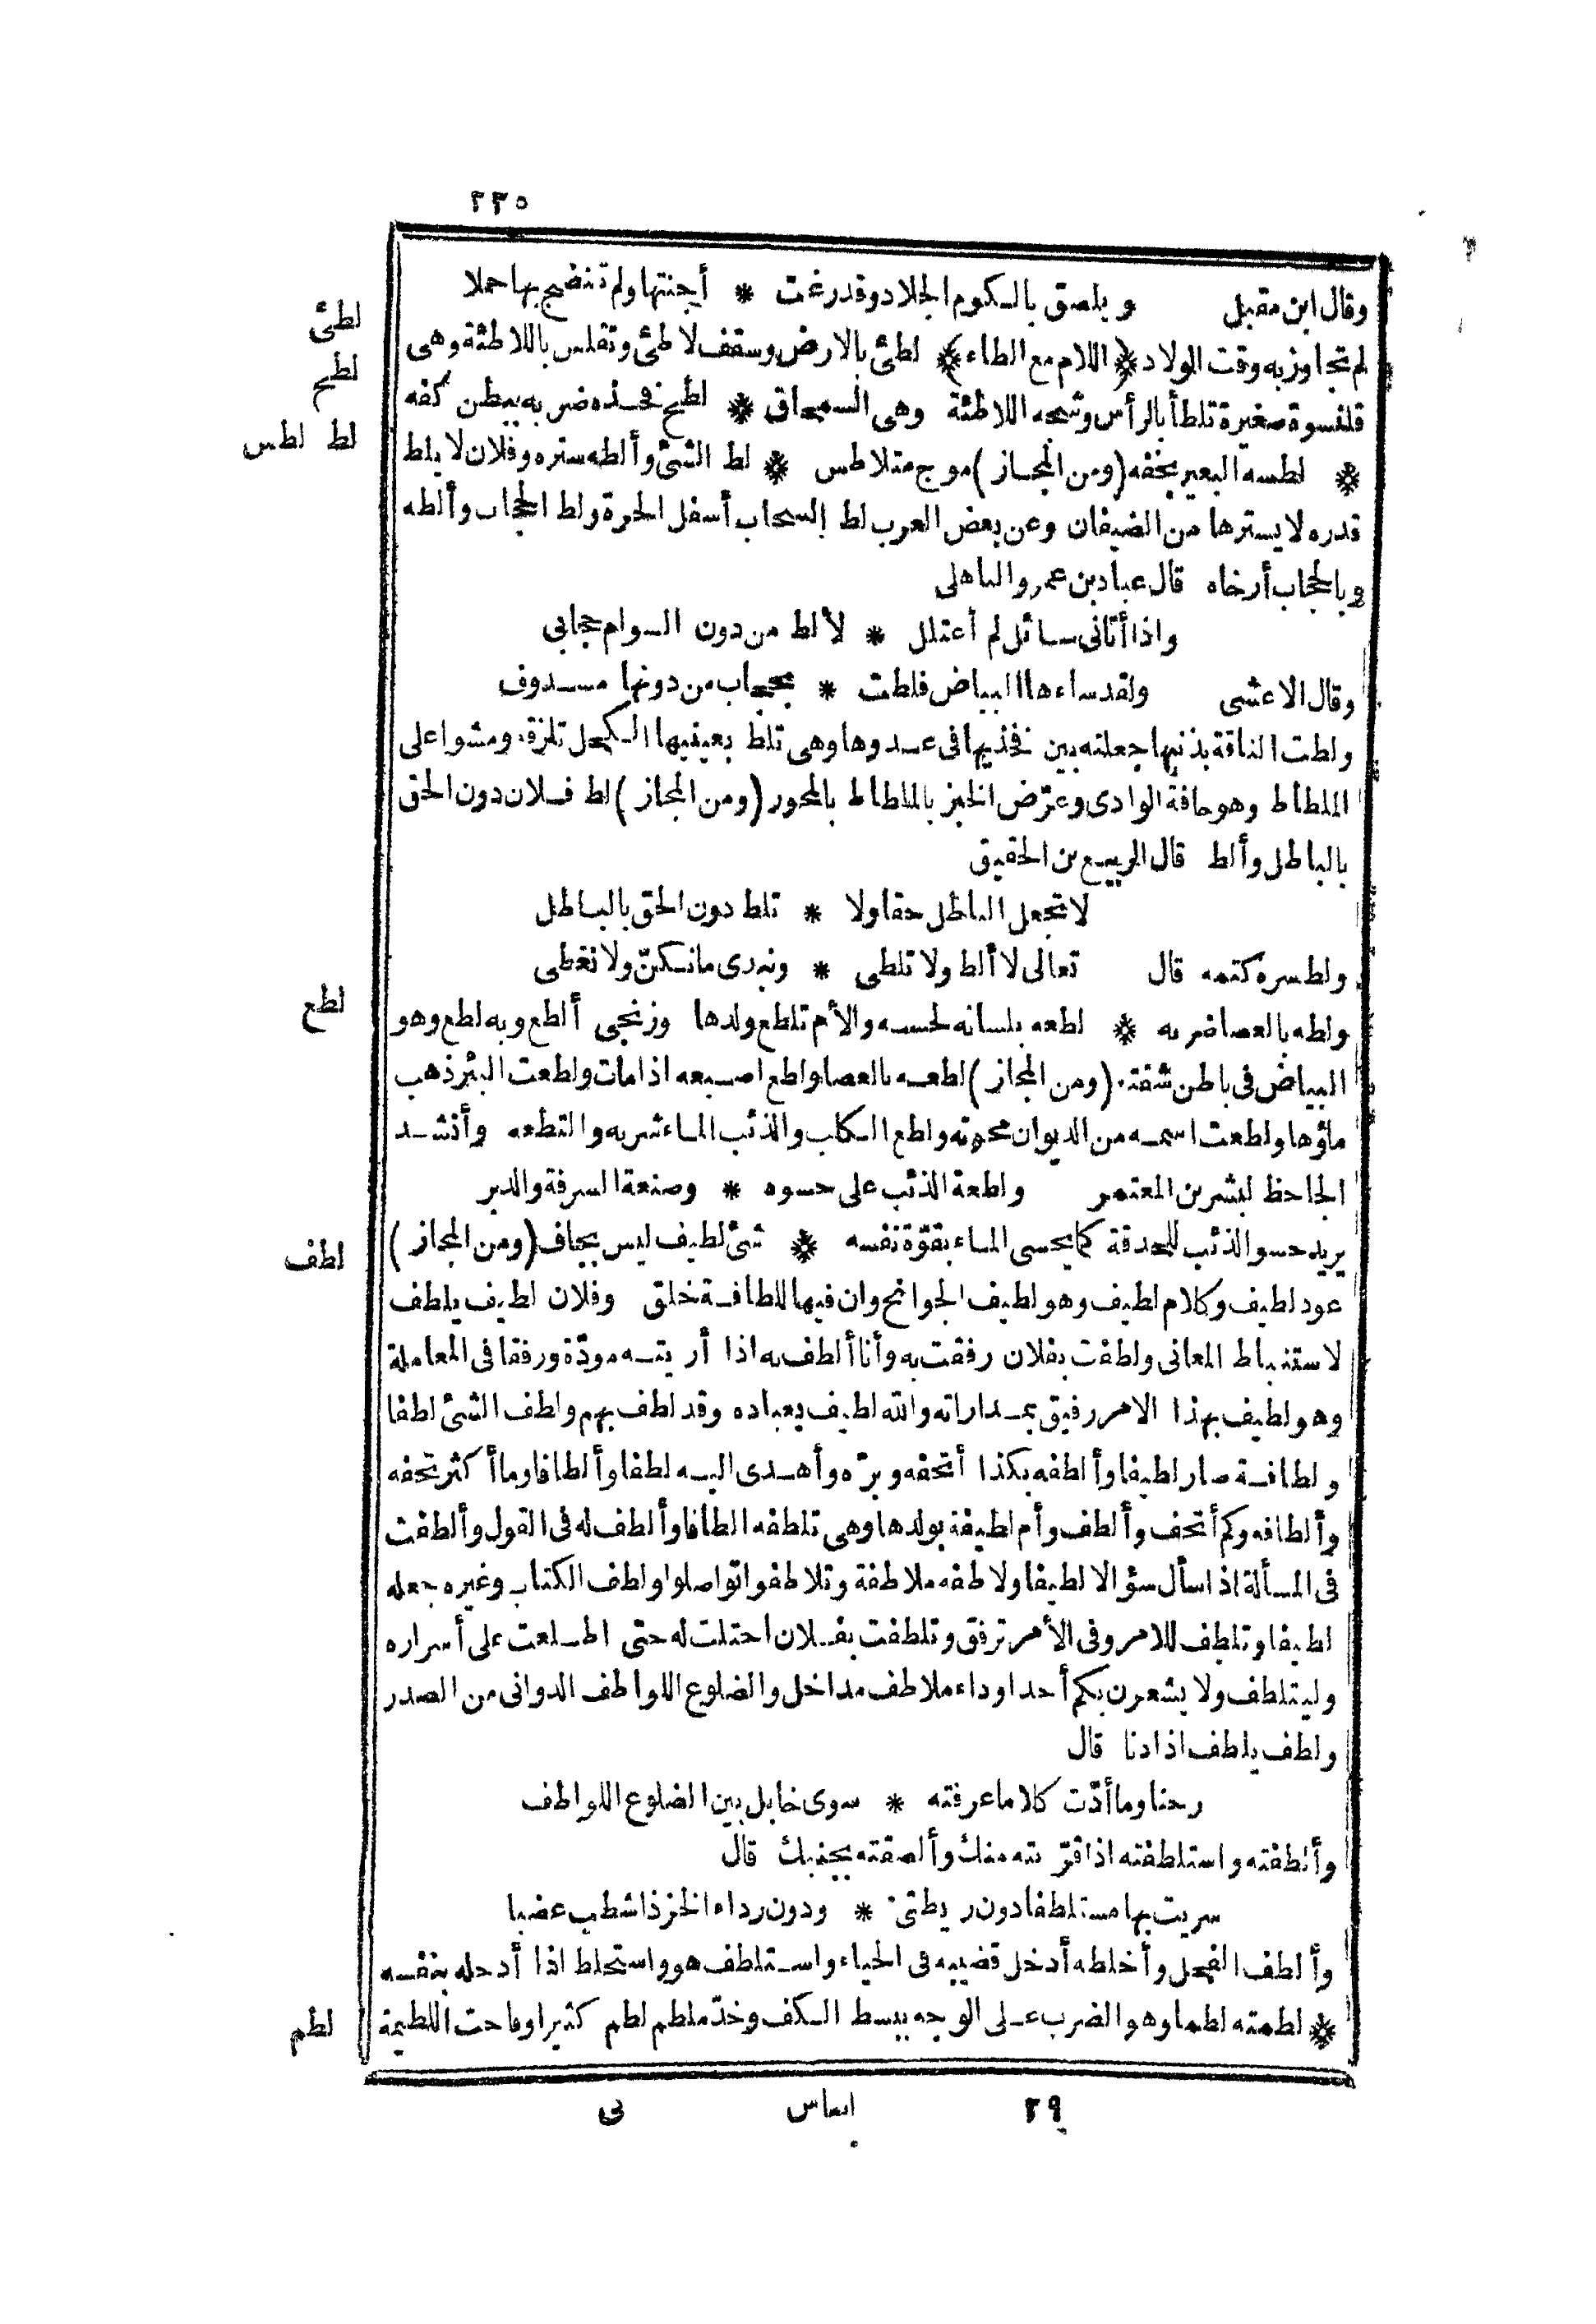 ٢٢٥
وقال ابن مقبل ويلصق بالكوم الجلاد وقد رغت * أجنتها ولم تنضج بها حملا
لم تجاوز به وقت الولاد ﴿اللام مع الطاء﴾ لطئ بالارض وسقف لاطئ وتقلس باللاطئة وهى
لطئ
قلنسوة صغيرة تلطأ بالرأس وشجه اللاطئة وهى السمحاق * لطح فخذه ضربه ببطن كفه
لطح
* لطسه البعير بخفه (ومن المجاز) موج متلاطس * لط الشئ وألطه ستره وفلان لا يلط
لط لطس
قدره لا يسترها من الضيفان وعن بعض العرب لط السحاب أسفل الحرة ولط الحجاب وألطه
وبالحجاب أرخاه قال عباد بن عمرو الباهلى
واذا أتانى سائل لم أعتلل * لألط من دون السوام حجابى
وقال الاعشى ولقد ساءها البياض فلطت * بحجاب من دونها مسدوف
ولطت الناقة بذنبها جعلته بين فخذيها فى عدوها وهى تلط بعينيها الكحل تلزقه ومشوا على
الملطاط وهو حافة الوادى وعرّض الخبز بالملطاط بالمحور (ومن المجاز) لط فلان دون الحق
بالباطل وألط قال الربيع بن الحقيق
لا تجعل الباطل حقا ولا * تلط دون الحق بالباطل
ولط سره كتمه قال تعالى لا ألط ولا تلطى * ونبدى ما نسكنّ ولا نغطى
ولطه بالعصا ضربه * لطعه بلسانه لحسه والأم تلطع ولدها وزنجى ألطع وبه لطع وهو
لطع
البياض فى باطن شفته (ومن المجاز) لطعه بالعصا ولطع اصبعه اذا مات ولطعت البئر ذهب
ماؤها ولطعت اسمه من الديوان محوته ولطع الكلب والذئب الماء شربه والتطعه وأنشد
الجاحظ لبشر بن المعتمر ولطعة الذئب على حسوه * وصنعة السرفة والدبر
يريد حسو الذئب للحدقة كما يحسى الماء بقوّة نفسه * شئ لطيف ليس بجاف (ومن المجاز)
لطف
عود لطيف وكلام لطيف وهو لطيف الجوانح وان فيها للطافة خلق وفلان لطيف يلطف
لاستنباط المعانى ولطفت بفلان رفقت به وأنا ألطف به اذا أريته مودّة ورفقا فى المعاملة
وهو لطيف بهذا الامر رفيق بمداراته والله لطيف بعباده وقد لطف بهم ولطف الشئ لطفا
ولطافة صار لطيفا وألطفه بكذا أتحفه وبرّه وأهدى اليه لطفا وألطافا وما أكثر تحفه
وألطافه وكم أتحف وألطف وأم لطيفة بولدها وهى تلطفه الطافا وألطف له فى القول وألطفت
فى المسألة اذا سأل سؤالا لطيفا ولاطفه ملاطفة وتلاطفوا تواصلوا ولطف الكتاب وغيره جعله
لطيفا وتلطف للامر وفى الأمر ترفق وتلطفت بفلان احتلت له حتى اطلعت على أسراره
وليتلطف ولا يشعرن بكم أحدا وداء ملاطف مداخل والضلوع اللواطف الدوانى من الصدر
ولطف يلطف اذا دنا قال
رحنا وما أدّت كلاما عرفته * سوى خابل بين الضلوع اللواطف
وألطفته واستلطفته اذا قرّبته منك وألصقته بجنبك قال
سريت بها مستلطفا دون ريطتى * ودون رداء الخز ذا شطب عضبا
وألطف الفحل وأخلطه أدخل قضيبه فى الحياء واستلطف هو واستخلط اذا أدخله بنفسه
* لطمته لطما وهو الضرب على الوجه ببسط الكف وخدّ ملطم لطم كثيرا وفاحت اللطيمة
لطم
٢٩ اساس نى